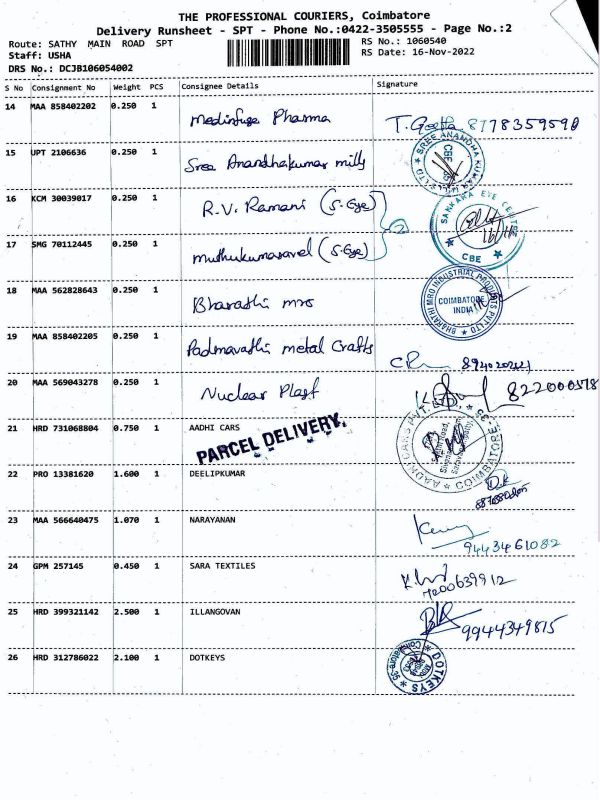 THE PROFESSIONAL COURIERS, Coimbatore
Delivery Runsheet - SPT - Phone No.:0422-3505555 - Page No.:2
Route: SATHY MAIN ROAD SPT RS No.: 1060540
Staff: USHA RS Date: 16-Nov-2022
DRS No.: DCJB106054002
S No Consignment No Weight PCS Consignee Details Signature
14 MAA 858402202 0.250 1 Medinfuge Pharma T. Geetha 8778359590
15 UPT 2106636 0.250 1 Sree Anandhakumar mills
SREE ANANDHA KUMAR MILLS LTD
CBE - 35
16 KCM 30039017 0.250 1 R.V. Ramani (S.Eye)
SANKARA EYE CENTRE
CBE
17 SMG 70112445 0.250 1 muthukumaravel (S.Eye) 2
18 MAA 562828643 0.250 1 Bharathi mro
BHARATHI MRO INDUSTRIAL PRODUCTS PVT LTD
COIMBATORE
INDIA
19 MAA 858402205 0.250 1 Padmavathi metal Crafts
20 MAA 569043278 0.250 1 Nuclear Plast 822000578
21 HRD 731068804 0.750 1 AADHI CARS
PARCEL DELIVERY.
AADHI CARS PVT. LTD. COIMBATORE-35
22 PRO 13381620 1.600 1 DEELIPKUMAR
23 MAA 566640475 1.070 1 NARAYANAN 9443461082
24 GPM 257145 0.450 1 SARA TEXTILES 7200639912
25 HRD 399321142 2.500 1 ILLANGOVAN 9944349815
26 HRD 312786022 2.100 1 DOTKEYS
DOTKEYS